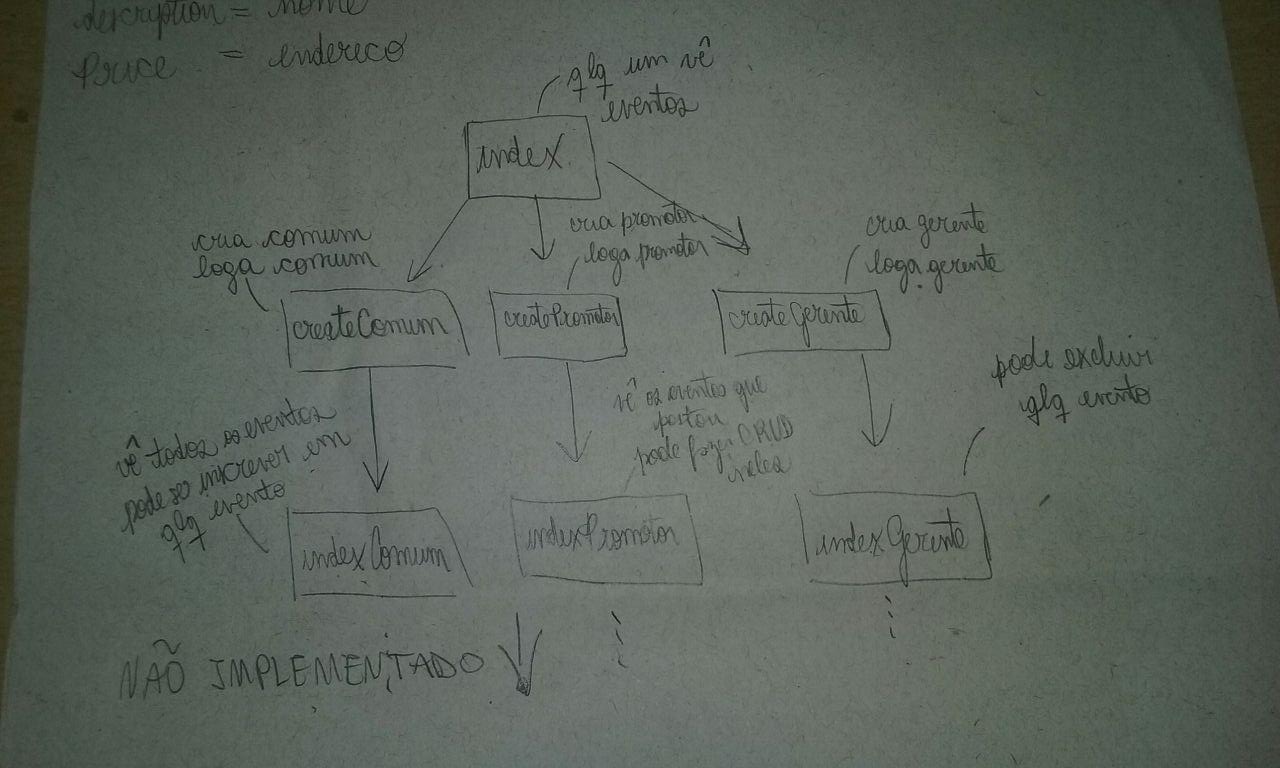 description = nome
Price = endereco
qlq um vê
eventos
index
cria comum
loga comum
cria promotor
loga promotor
cria gerente
loga gerente
createComum
createPromotor
createGerente
vê todos os eventos
pode se inscrever em
qlq evento
vê os eventos que
postou
pode fazer CRUD
neles
pode excluir
qlq evento
indexComum
indexPromotor
indexGerente
NÃO IMPLEMENTADO